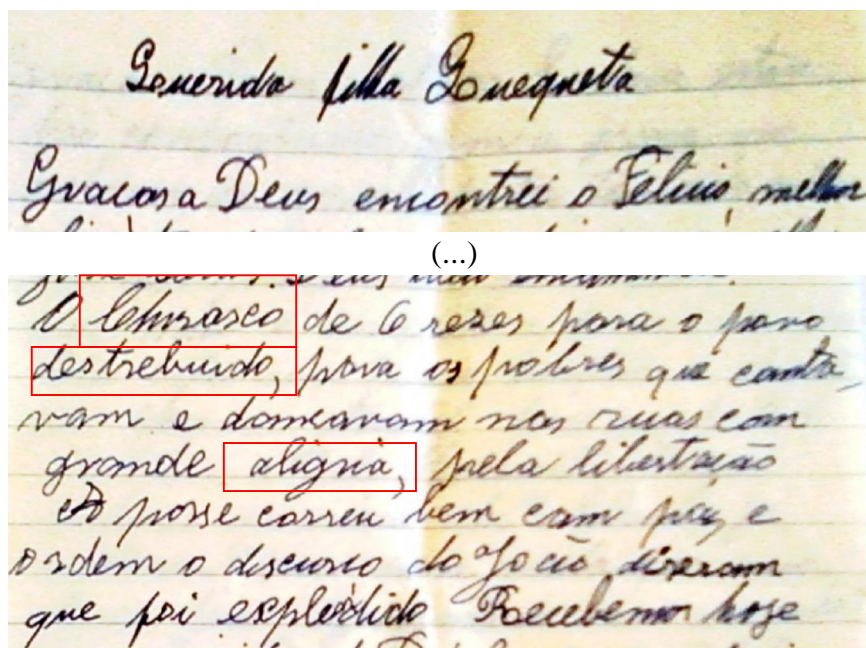 Querida filha Zuequeta
Gracas a Deus encontrei o Felicio, melhor
(...)
O Churasco de 6 rezes para o povo
destrebuido, para os pobres que canta,
vam e dancavam nas ruas com
grande aligria, pela libertação
A posse correu bem com paz, e
ordem o discurso do João dizeram
que foi esplêdido Recebemos hoje